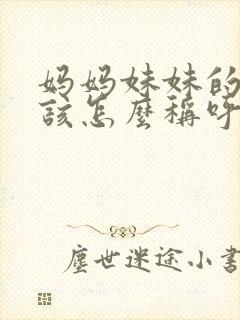 妈妈妹妹的
该怎麼稱呼
塵世迷途小書